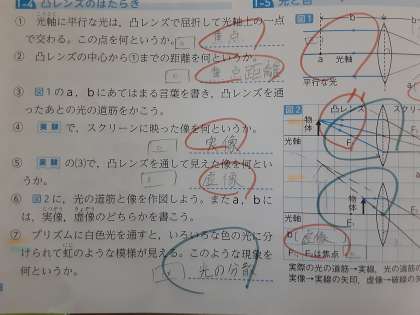 1-4 凸レンズのはたらき
① 光軸に平行な光は、凸レンズで屈折して光軸上の一点
で交わる。この点を何というか。
焦点
② 凸レンズの中心から①までの距離を何というか。
焦点距離
③ 図1のa、bにあてはまる言葉を書き、凸レンズを通
ったあとの光の道筋をかこう。
④ 実験 で、スクリーンに映った像を何というか。
実像
⑤ 実験 の(3)で、凸レンズを通して見えた像を何とい
うか。
虚像
⑥ 図2に、光の道筋と像を作図しよう。またa、bに
は、実像、虚像のどちらかを書こう。
⑦ プリズムに白色光を通すと、いろいろな色の光に分
けられて虹のような模様が見える。このような現象を
何というか。
光の分散
1-5
図1
b
a 光軸
平行な光
図2
凸レンズ スクリ
物体
光軸
F₁
物体
光軸
F₁
b 虚像
F₁、F₂は焦点
実際の光の道筋→実線、光の道
実像→実線の矢印、虚像→破線の矢